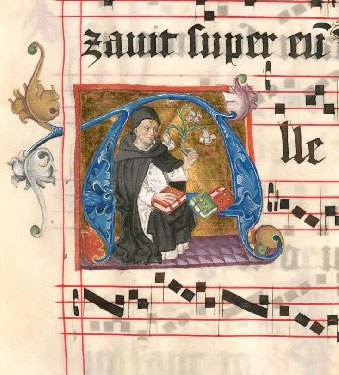 zauit super eū
Alle